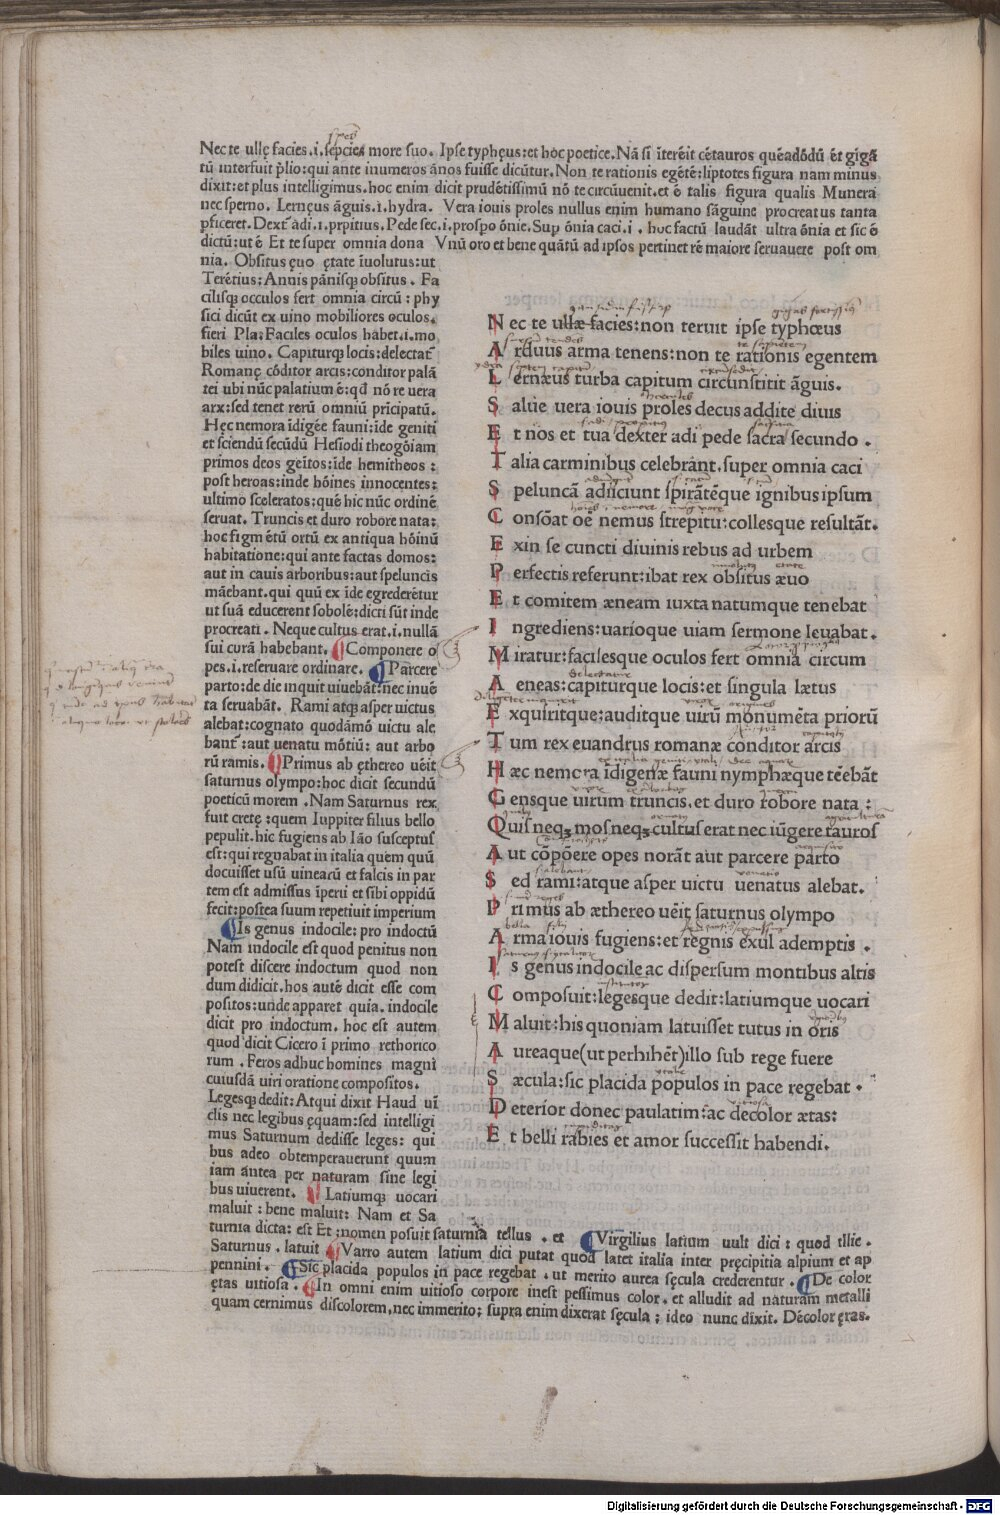 Nec te ullę facies.i.sępcies more suo. Ipse typhęus:et hoc poetice. Nā si īterēit cētauros quēadōdū ēt gigā
tū interfuit p̄lio:qui ante inumeros ānos fuisse dicūtur. Non te rationis egētē:liptotes figura nam minus
dixit:et plus intelligimus.hoc enim dicit prudētissimū nō te circūuenit.et ē talis figura qualis Munera
nec sperno. Lernęus āguis.i.hydra. Vera iouis proles nullus enim humano sāguine procreatus tanta
pficeret. Dext̄ adi.i.prpitius. Pede sec.i.prospo ōnie. Sup ōnia caci.i. hoc factū laudāt ultra ōnia et sic ē
dictū:ut ē Et te super omnia dona Vnū oro et bene quātū ad ipsos pertinet rē maiore seruauere post om
nia. Obsitus ęuo ętate īuolutus:ut
Terētius: Annis pānisq obsitus. Fa
cilisq occulos fert omnia circū: phy
sici dicūt ex uino mobiliores oculos.
fieri Pla: Faciles oculos habet.i.mo
biles uino. Capiturq locis: delectat
Romanę cōditor arcis: conditor palā
tei ubi nūc palatium ē:qd nō re uera
arx:sed tenet rerū omniū pricipatū.
Hęc nemora idigēe fauni:ide geniti
et sciendū secūdū Hesiodi theogōiam
primos deos geītos:ide hemitheos:
post heroas:inde hōines innocentes:
ultimo sceleratos:quē hic nūc ordinē
seruat. Truncis et duro robore nata:
hoc figm ētū ortū ex antiqua hōinū
habitatione:qui ante factas domos:
aut in cauis arboribus:aut speluncis
māebant.qui quū ex ide egrederētur
ut suā educerent sobolē:dicti sūt inde
procreati. Neque cultus erat.i.nullā
sui curā habebant. Componere o
pes.i.reseruare ordinare. Parcere
parto:de die inquit uiuebāt:nec inuē
ta seruabāt. Rami atq asper uictus
alebat:cognato quodāmō uictu ale
bant:aut uenatu mōtiū: aut arbo
rū ramis. Primus ab ęthereo uēit
saturnus olympo:hoc dicit secundū
poeticū morem. Nam Saturnus rex
fuit cretę:quem Iuppiter filius bello
pepulit.hic fugiens ab Iāo susceptus
est:qui regnabat in italia quem quū
docuisset usū uinearū et falcis in par
tem est admissus īperii et sibi oppidū
fecit:postea suum repetiuit imperium
Is genus indocile: pro indoctū
Nam indocile est quod penitus non
potest discere indoctum quod non
dum didicit.hos autē dicit esse com
positos:unde apparet quia. indocile
dicit pro indoctum. hoc est autem
quod dicit Cicero ī primo rethorico
rum. Feros adhuc homines magni
cuiusdā uiri oratione compositos.
Legesq dedit: Atqui dixit Haud ui
clis nec legibus ęquam:sed intelligi
mus Saturnum dedisse leges: qui
bus adeo obtemperauerunt quum
iam āntea per naturam sine legi
bus uiuerent. Latiumq uocari
maluit: bene maluit: Nam et Sa
turnia dicta: est Et; nomen posuit saturnia tellus. et Virgilius latium uult dici: quod illic.
Saturnus. latuit Varro autem latium dici putat quod latet italia inter pręcipitia alpium et ap
pennini. Sic placida populos in pace regebat. ut merito aurea sęcula crederentur. De color
ętas uitiosa. In omni enim uitioso corpore inest pessimus color. et alludit ad naturam metalli
quam cernimus discolorem,nec immerito; supra enim dixerat sęcula; ideo nunc dixit. Decolor ętas.
N ec te ullæ facies:non teruit ipse typhœus
A rduus arma tenens:non te rationis egentem
L ernæus turba capitum circunstitit āguis.
S alue uera iouis proles decus addite diuis
E t nos et tua dexter adi pede sacra secundo.
T alia carminibus celebrant.super omnia caci
S peluncā adiiciunt spirātēque ignibus ipsum
C onsōat oē nemus strepitu:collesque resultāt.
E xin se cuncti diuinis rebus ad urbem
P erfectis referunt:ibat rex obsitus æuo
E t comitem æneam iuxta natumque tenebat
I ngrediens:uarioque uiam sermone leuabat.
M iratur:facilesque oculos fert omnia circum
A eneas:capiturque locis:et singula lætus
E xquiritque:auditque uirū monumēta priorū
T um rex euandrus romanæ conditor arcis
H æc nemora idigenæ fauni nymphæque tēebāt
G ensque uirum truncis.et duro robore nata:
Quis neq; mos neq; cultus erat nec iūgere tauros
A ut cōpōere opes norāt aut parcere parto
S ed rami:atque asper uictu uenatus alebat.
P rimus ab æthereo uēit saturnus olympo
A rma iouis fugiens:et regnis exul ademptis.
I s genus indocile ac dispersum montibus altis
C omposuit:legesque dedit:latiumque uocari
M aluit:his quoniam latuisset tutus in oris
A ureaque(ut perhibēt)illo sub rege fuere
S æcula:sic placida populos in pace regebat.
D eterior donec paulatim:ac decolor ætas:
E t belli rabies et amor successit habendi.
Digitalisierung gefördert durch die Deutsche Forschungsgemeinschaft - DFG